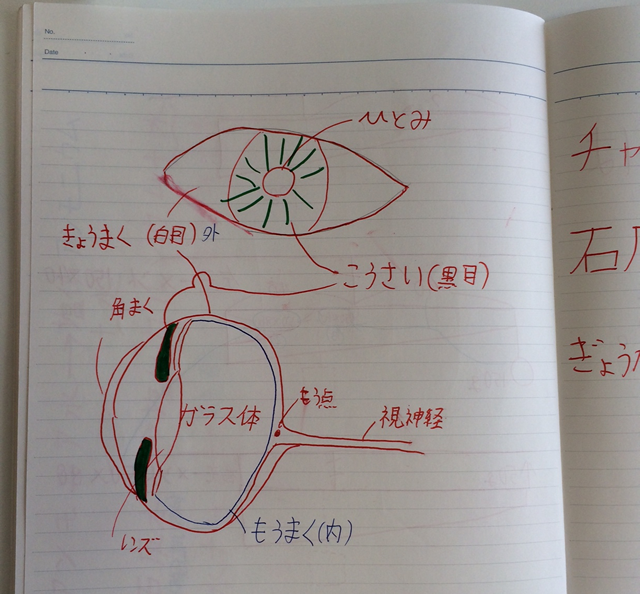 No.
Date
ひとみ
きょうまく (白目) 外
こうさい(黒目)
角まく
ガラス体
もう点
視神経
レンズ
もうまく(内)
チャ
ぎょう